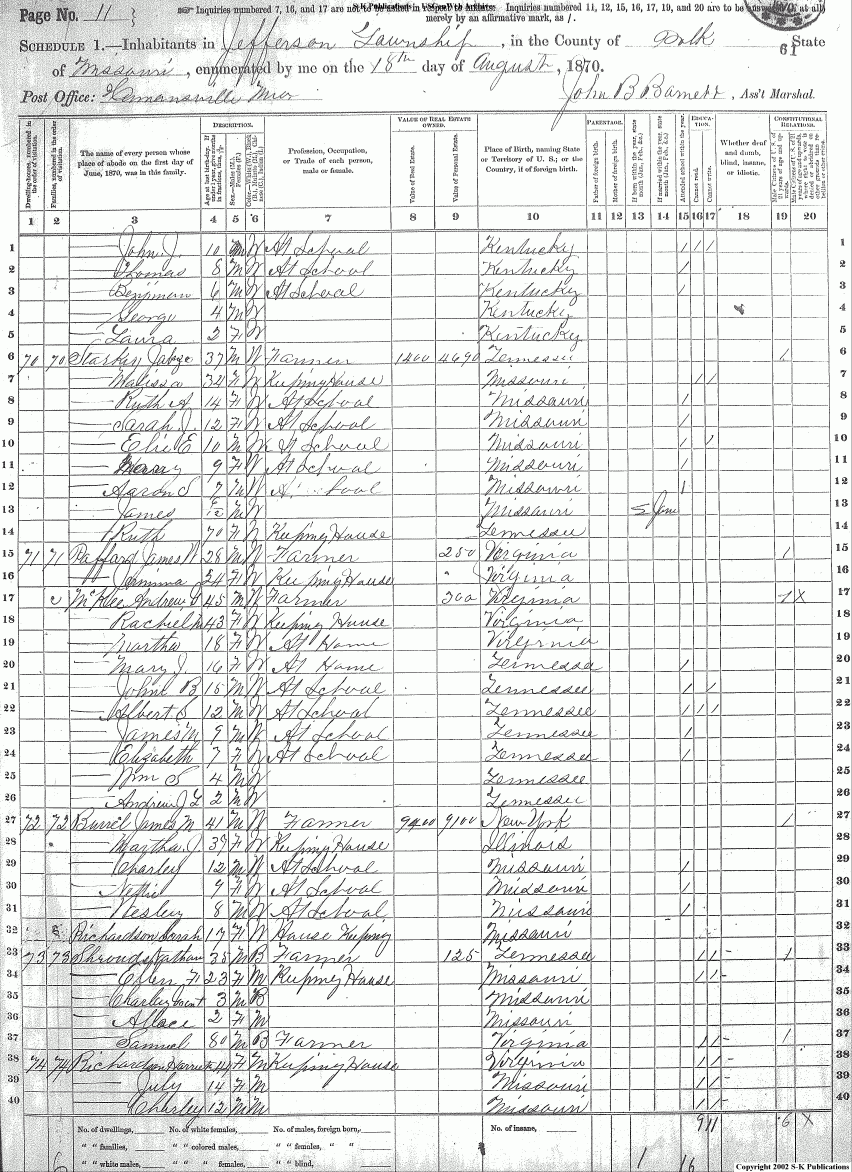 Page No. 11
Inquiries numbered 7, 16, and 17 are not to be asked in respect to infants. Inquiries numbered 11, 12, 15, 16, 17, 19, and 20 are to be answered, if at all,
S-K Publications - USGenWeb Archives
merely by an affirmative mark, as /.
61
SCHEDULE 1.—Inhabitants in Jefferson Township, in the County of Polk State
of Missouri, enumerated by me on the 18th day of August, 1870.
Post Office: Humansville Mo John B Barnett, Ass't Marshal.
DESCRIPTION. VALUE OF REAL ESTATE OWNED. PARENTAGE. EDUCATION. CONSTITUTIONAL RELATIONS.
Dwelling-houses, numbered in the order of visitation. Families, numbered in the order of visitation. The name of every person whose place of abode on the first day of June, 1870, was in this family. Profession, Occupation, or Trade of each person, male or female. Value of Real Estate. Value of Personal Estate. Place of Birth, naming State or Territory of U. S.; or the Country, if of foreign birth. Father of foreign birth. Mother of foreign birth. Attended school within the year. Cannot read. Cannot write. Whether deaf and dumb, blind, insane, or idiotic.
1 2 3 4 5 6 7 8 9 10 11 12 13 14 15 16 17 18 19 20
1 — John J. 10 M W At School Kentucky / / / 1
2 — Thomas 8 M W At School Kentucky / 2
3 — Benjiman 6 M W At School Kentucky / 3
4 — George 4 M W Kentucky 4
5 — Laura 2 F W Kentucky 5
6 70 70 37 M W Farmer 1400 Tennessee / 6
7 — Malissa 34 F W Keeping House Missouri / / 7
8 — Ruth A 14 F W At School Missouri / 8
9 — Sarah J. 12 F W At School Missouri / 9
10 — E 10 M W At School Missouri / / 10
11 — 9 F W At School Missouri / 11
12 — Aaron S 7 M W At School Missouri / 12
13 — James /12 M W Missouri June 13
14 — Ruth 70 F W Keeping House Tennessee 14
15 71 71 James 28 M W Farmer 250 Virginia / 15
16 — 24 F W Keeping House Virginia 16
17 McKlee Andrew 45 M W Farmer 300 Virginia / X 17
18 — Rachel M 43 F W Keeping House Virginia 18
19 — Martha 18 F W At Home Virginia 19
20 — Mary J. 16 F W At Home Tennessee / 20
21 — John B 15 M W At School Tennessee / / 21
22 — Albert S 12 M W At School Tennessee / / / 22
23 — James M 9 M W At School Tennessee / 23
24 — Elizabeth 7 F W At School Tennessee / 24
25 — Wm S 4 M W Tennessee 25
26 — Andrew J 2 M W Tennessee 26
27 72 72 Burrel James M 41 M W Farmer 9400 9100 New York / 27
28 — Martha J. 39 F W Keeping House Illinois 28
29 — Charley 12 M W At School Missouri / 29
30 — Nettie 9 F W At School Missouri / 30
31 — Wesley 8 M W At School Missouri / 31
32 Richardson Sarah 17 F W House Keeping Missouri 32
33 73 73 Shrouds Nathan 35 M B Farmer 125 Tennessee / / / 33
34 — Ellen F 23 F M Keeping House Missouri / / 34
35 — Charley 3 M B Missouri 35
36 — 2 F M Missouri 36
37 — Samuel 80 M B Farmer Virginia / / / 37
38 74 74 Richardson Harriet F M Keeping House Virginia / / 38
39 — July 14 F M Missouri / / 39
40 — Charley 12 M M Missouri / / 40
9 11 6 X
No. of dwellings, No. of white females, No. of males, foreign born, No. of insane,
" " families, " " colored males, " " females, " "
" " white males, " " " females, " " blind, 1 16
6
Copyright 2002 S-K Publications